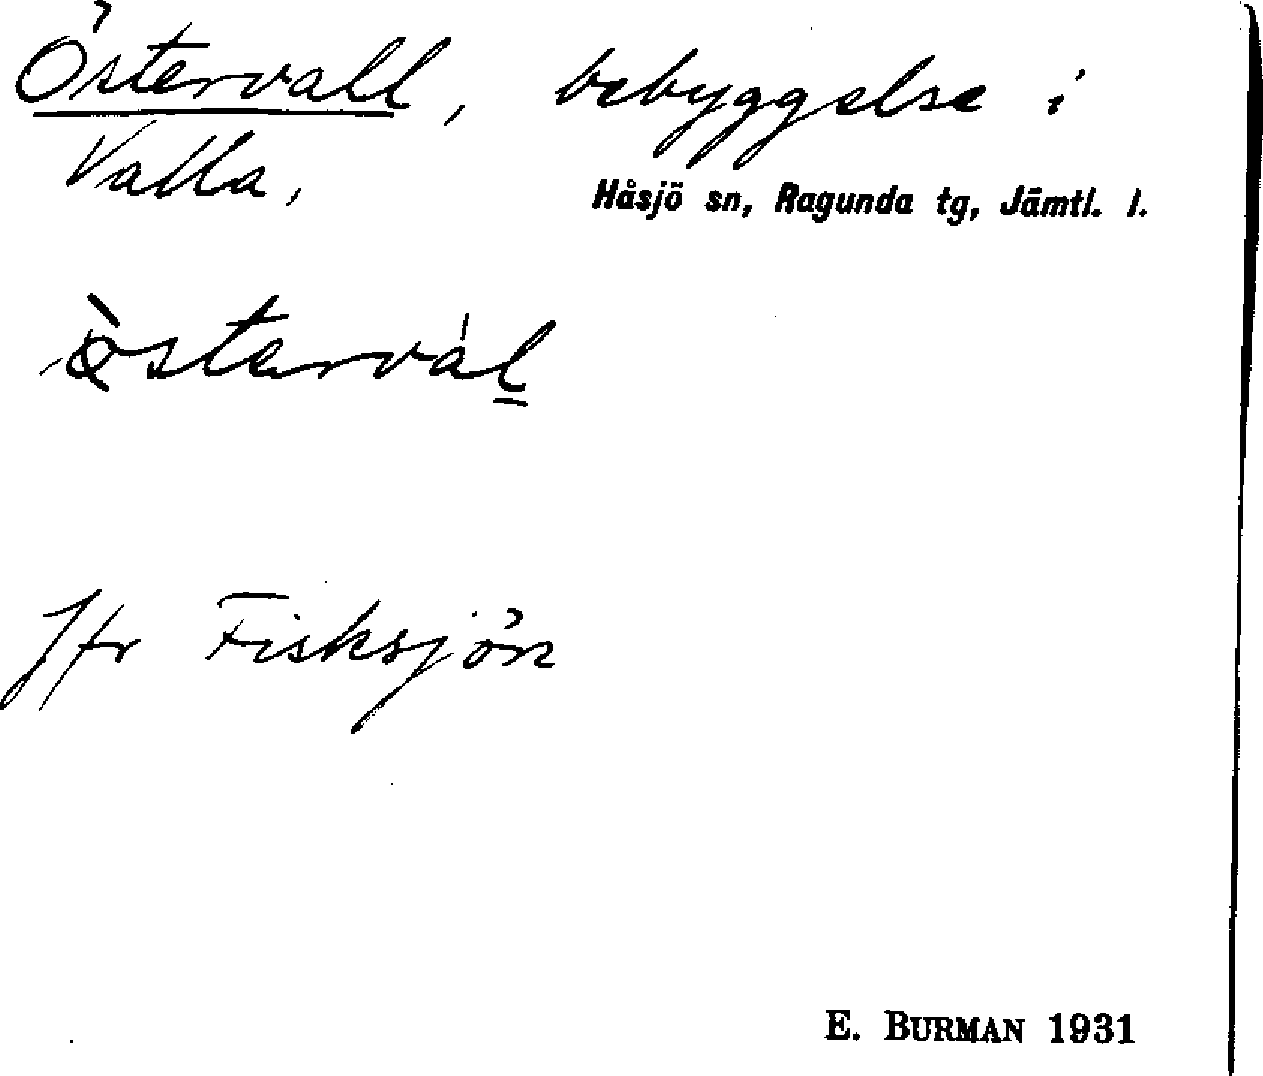 Östervall, bebyggelse i
Valla,
Håsjö sn, Ragunda tg, Jämtl. l.
Jfr Fisksjön
E. BURMAN 1931